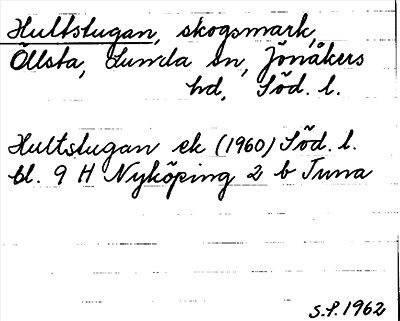 Hultstugan, skogsmark,
Ölsta, Lunda sn, Jönåkers
hd, Söd. l.
Hultstugan ek (1960) Söd. l.
bl. 9 H Nyköping 2 b Tuna
S.P. 1962